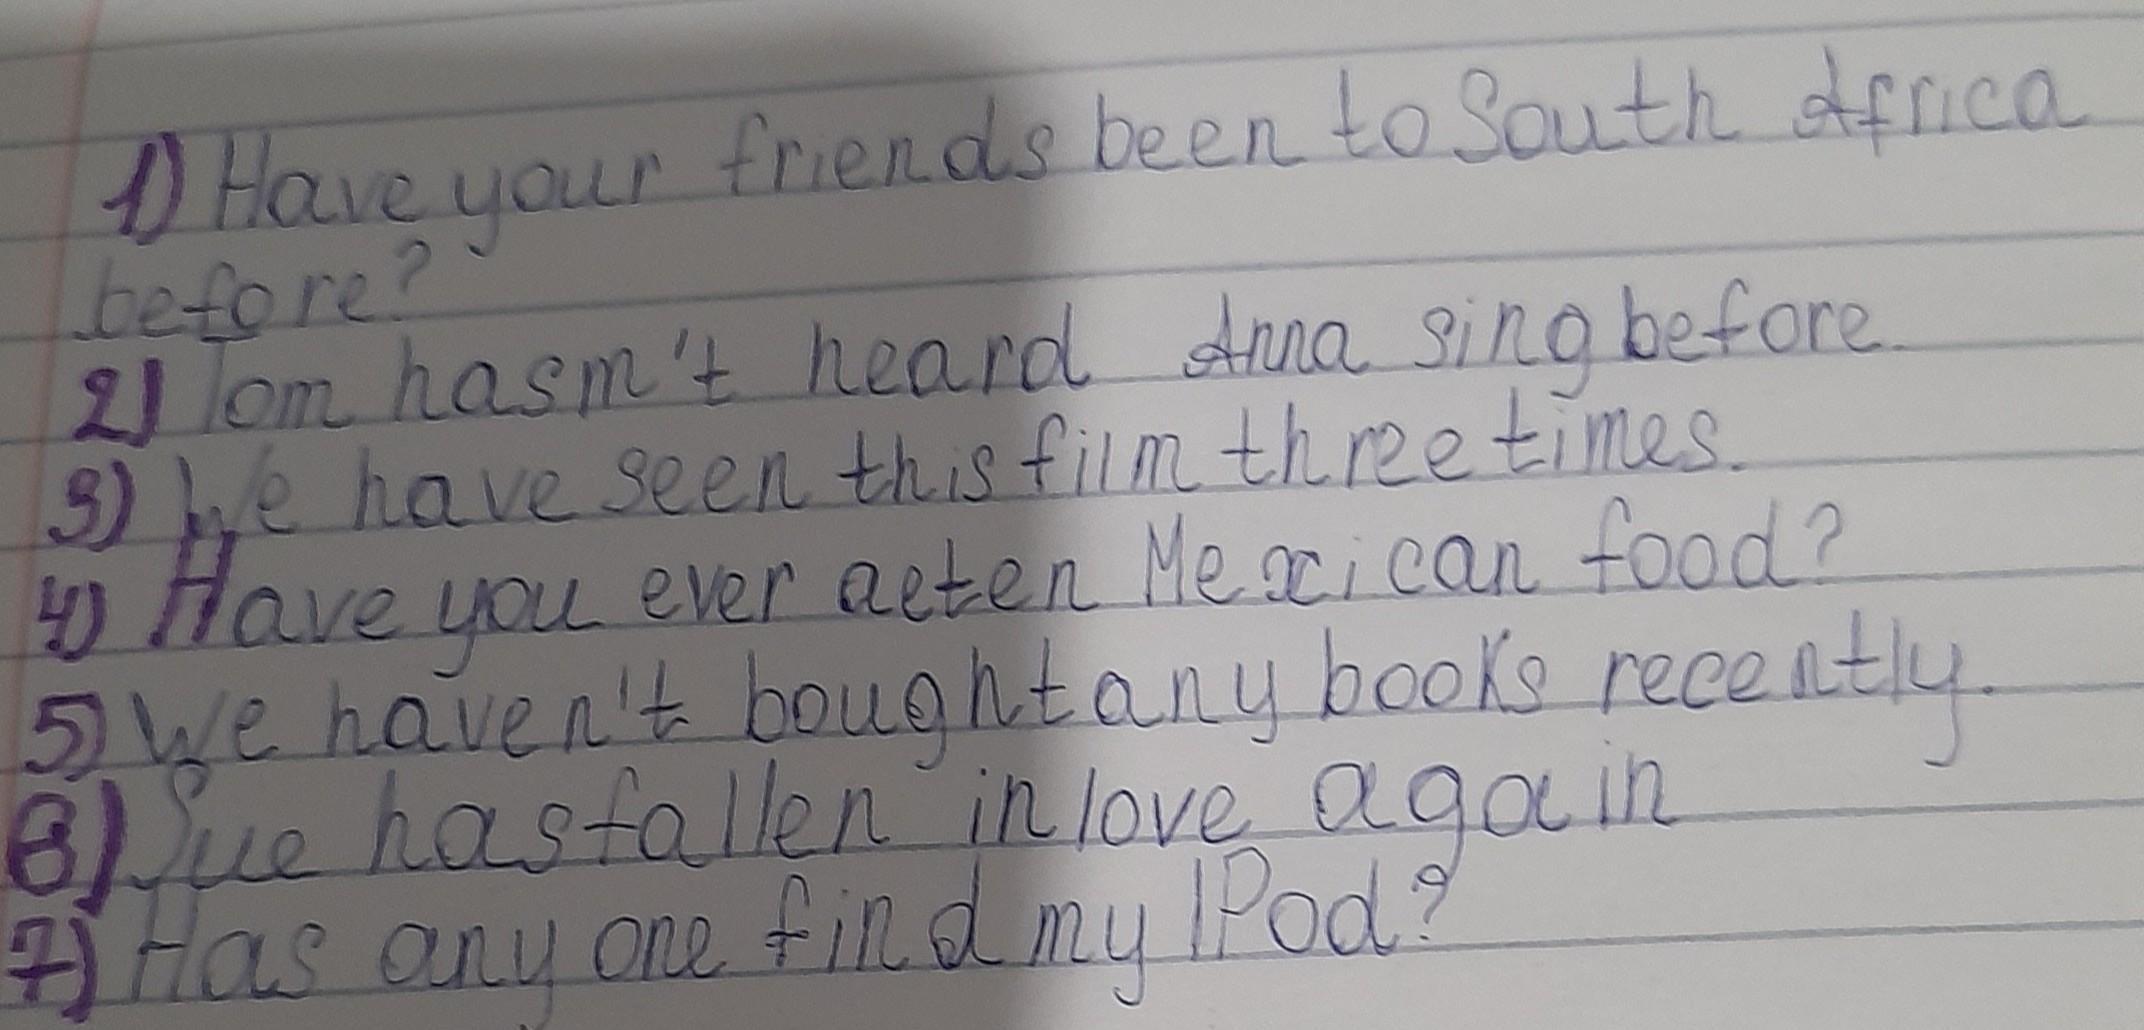 1) Have your friends been to South Africa
before?
2) Tom hasm't heard Anna sing before.
3) We have seen this film three times.
4) Have you ever aeten Mexican food?
5) We haven't bought any books recently.
6) Sue has fallen in love again
7) Has any one find my IPod?